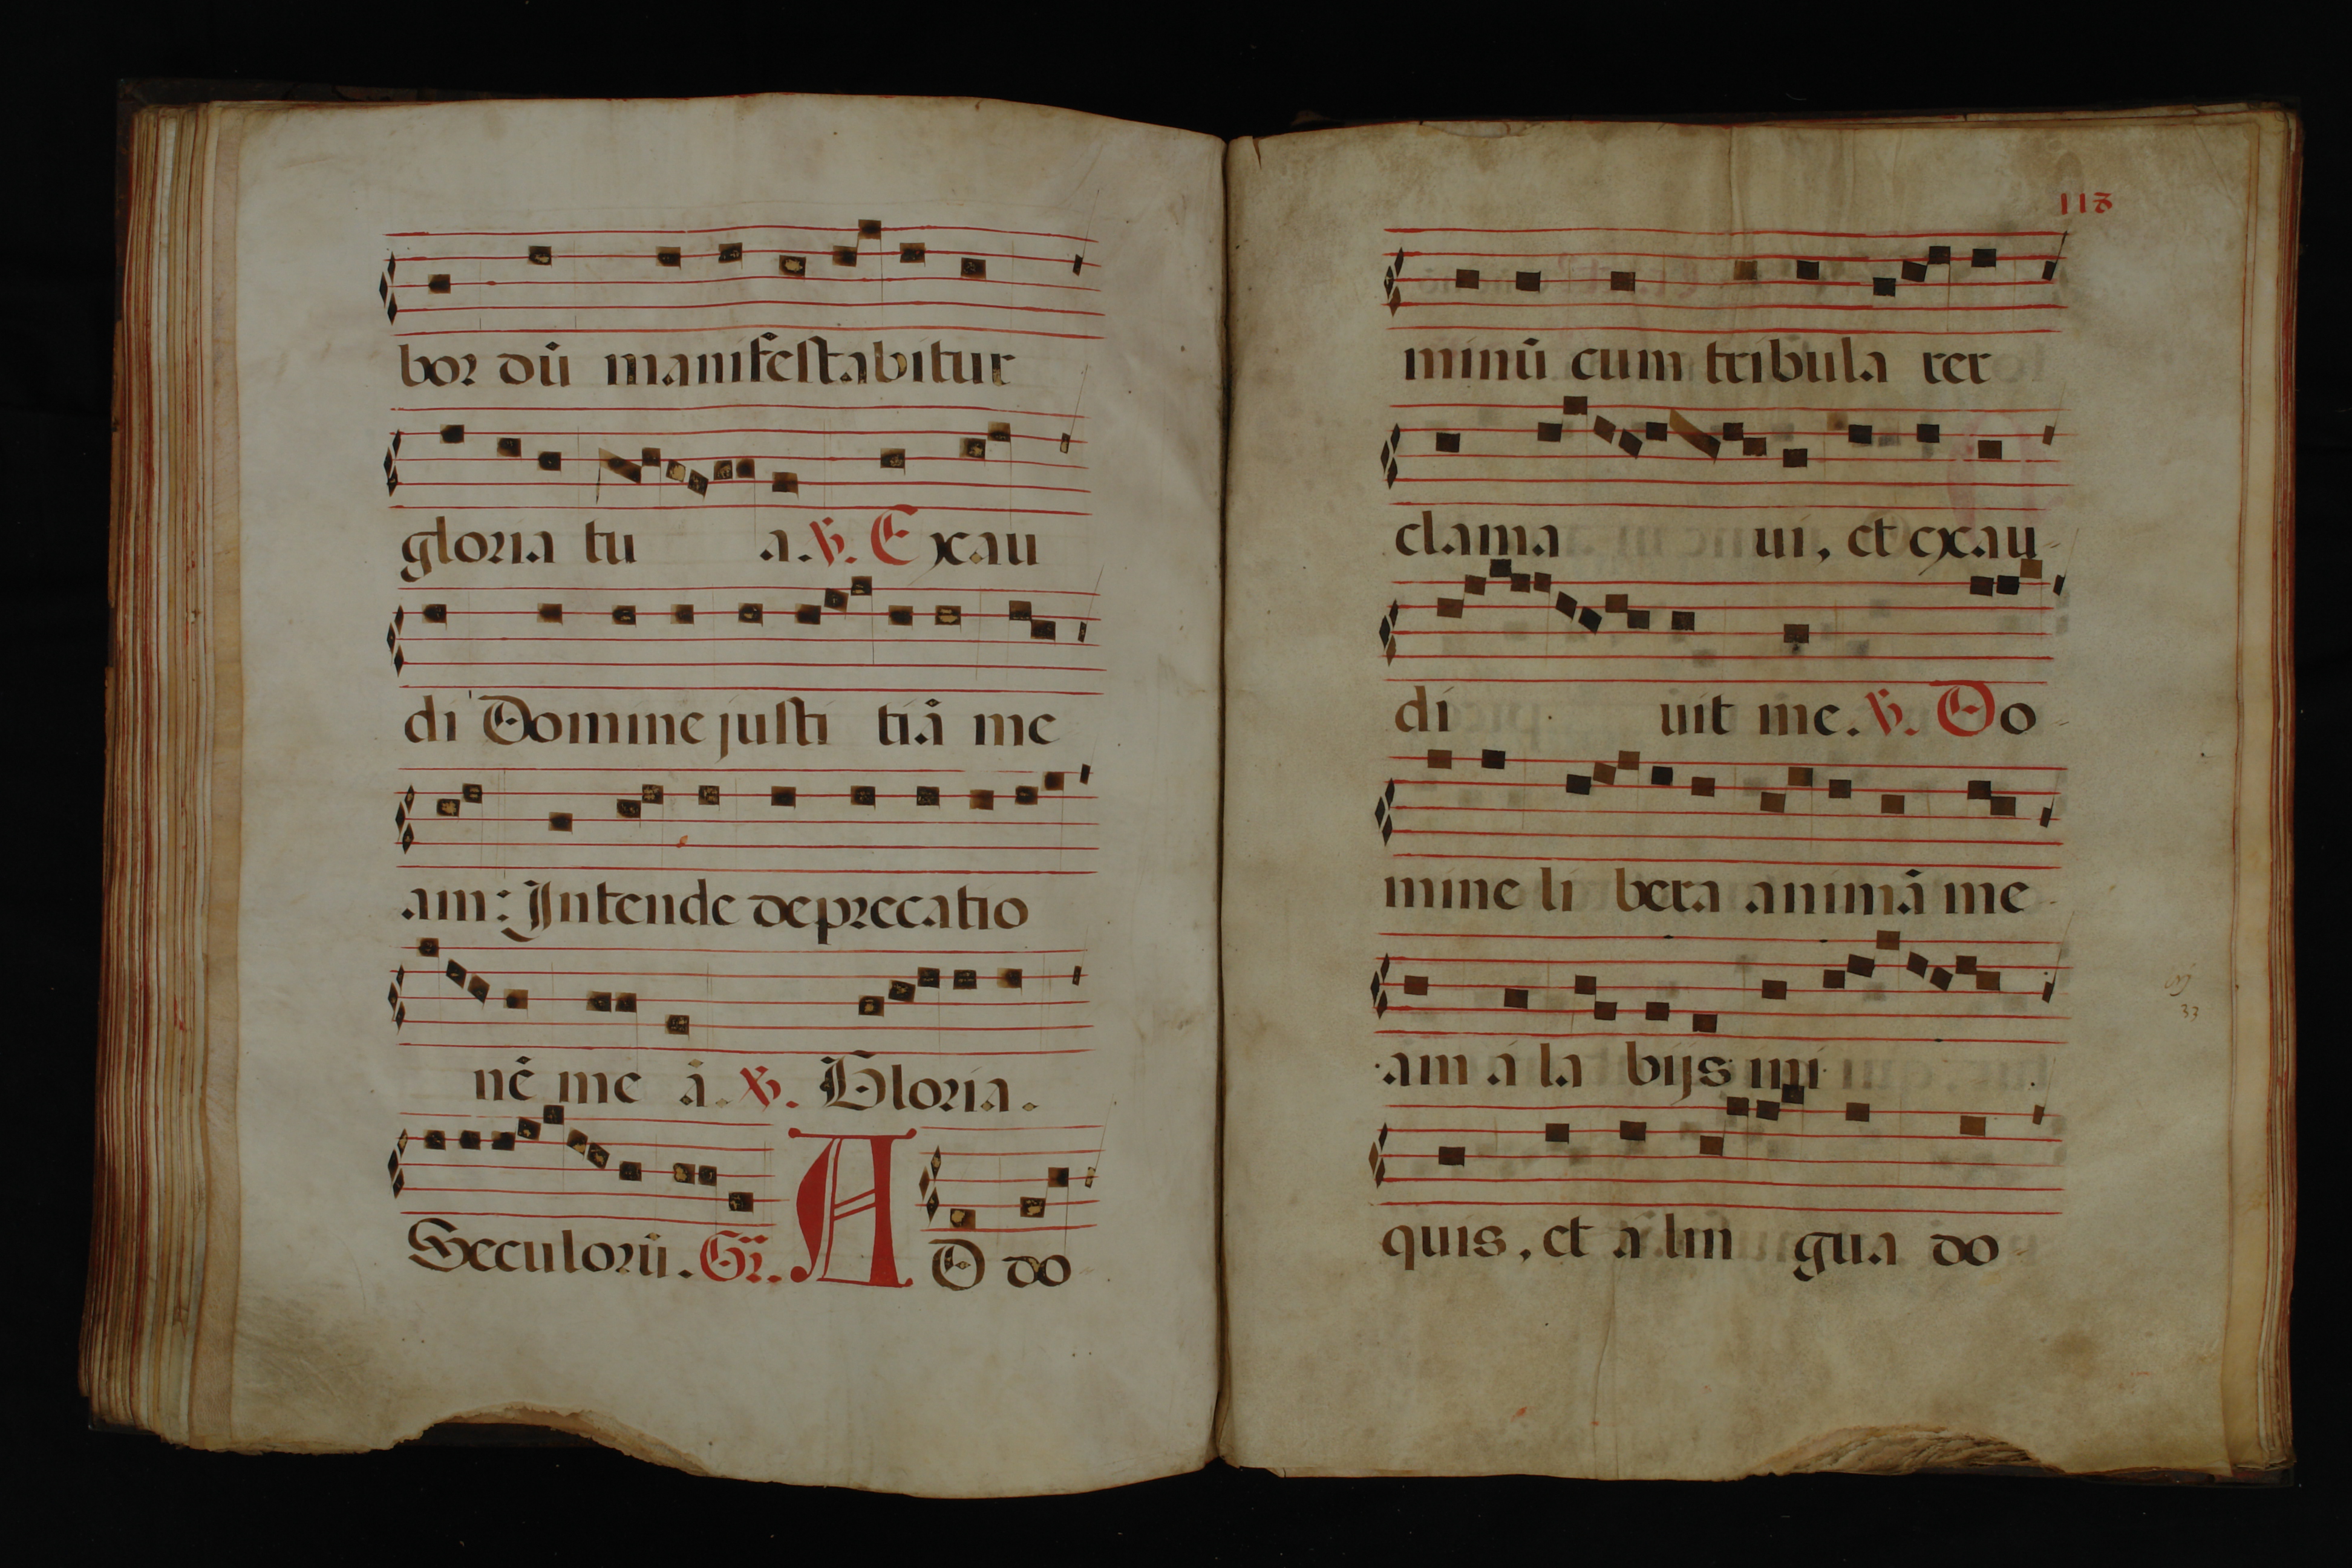 bor dū manifestabitur
gloria tu a. V. Exau
di Domine justi tiā me
am: Intende deprecatio
nē me ā. V. Gloria.
Seculorū. Gr. AD do
118
minū cum tribula rer
clama ui, et exau-
di uit me. V. Do-
mine li bera animā me-
am á la bijs ini
quis, et a lin gua do-
33